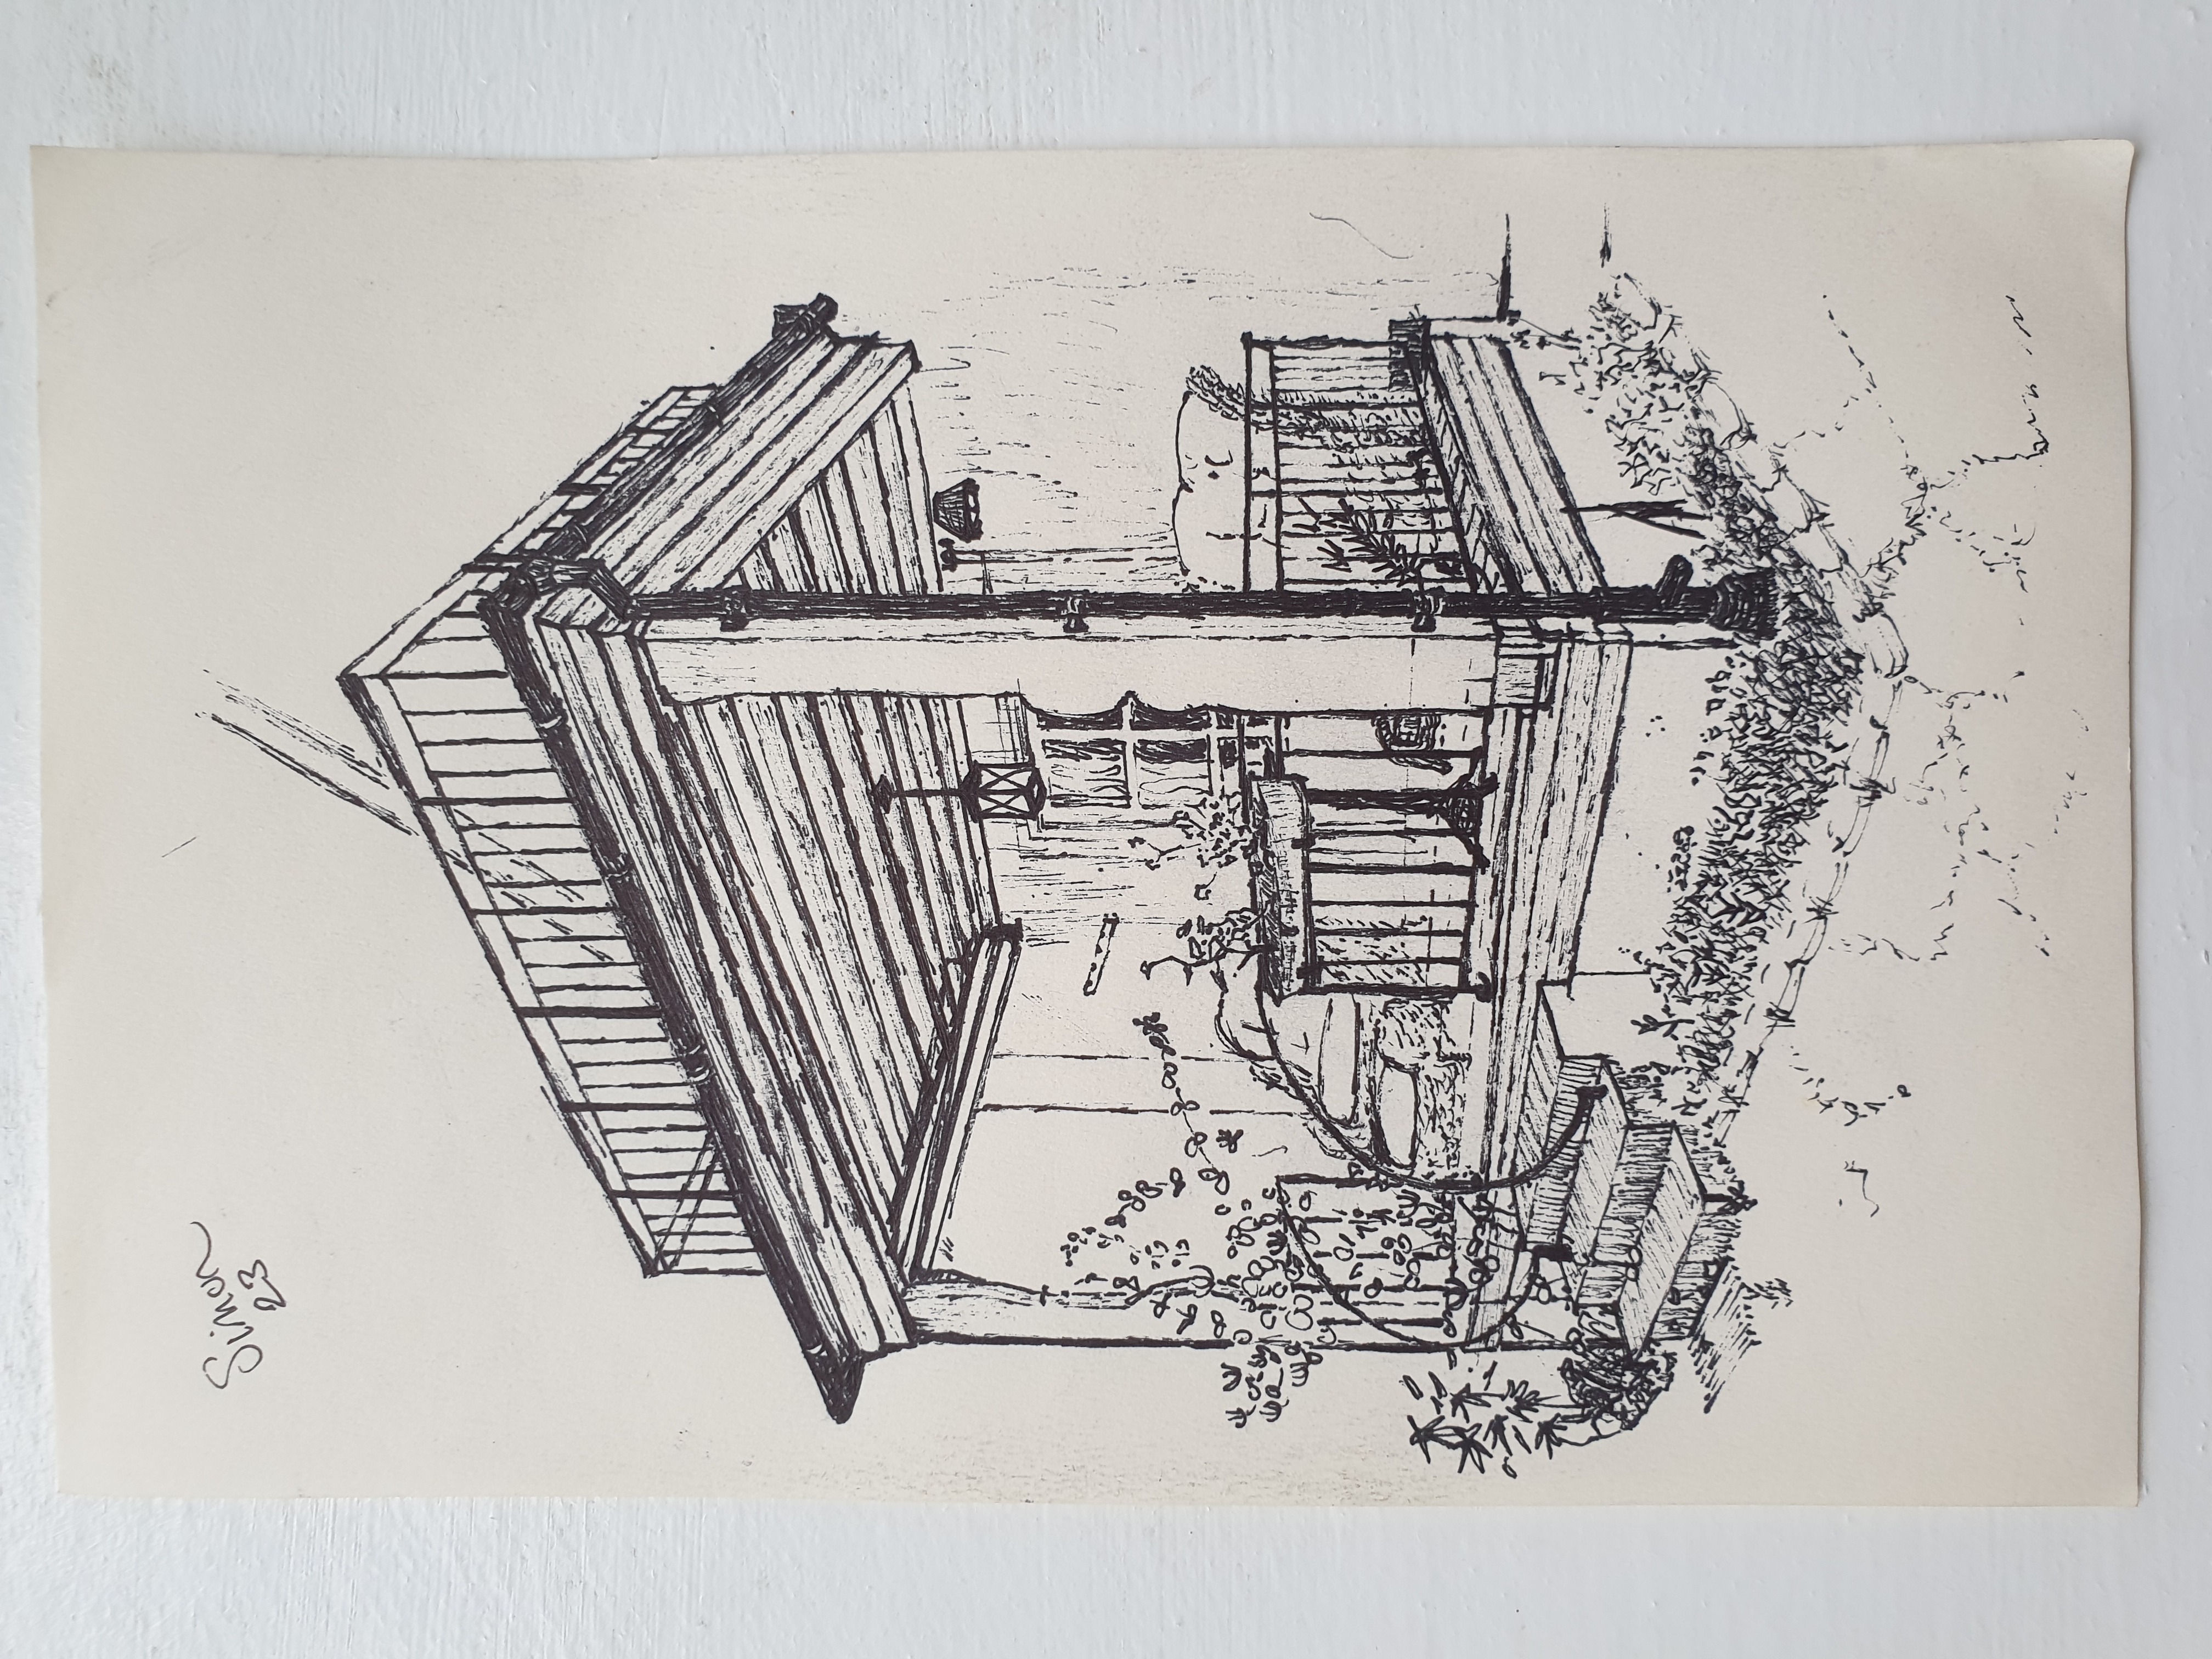 Simon
23